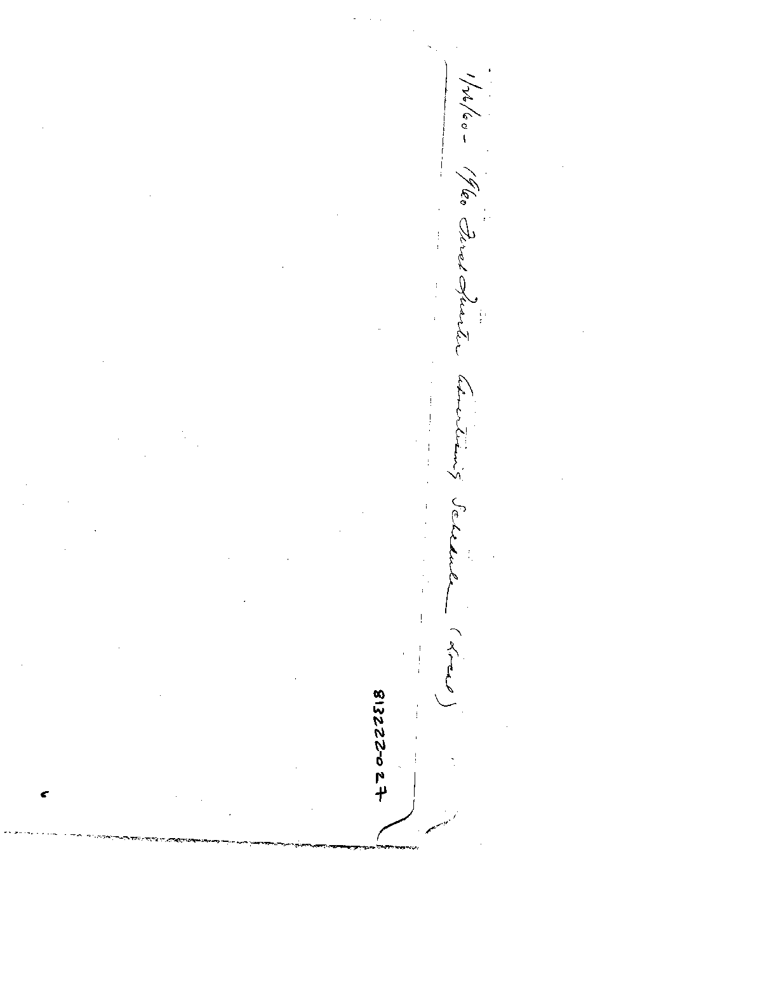 1/26/60 - 1960 First Quarter Advertising Schedule (Local)
81222027